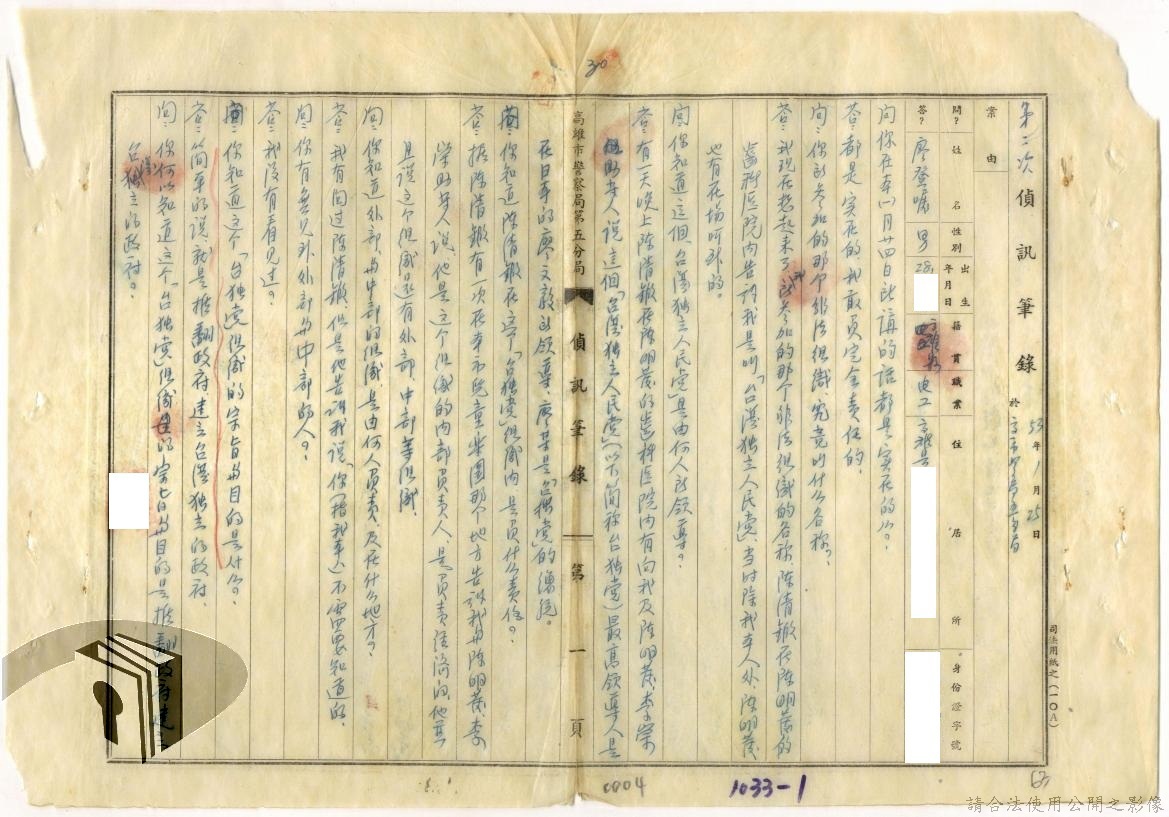 第二次偵訊筆錄 53年1月25日
於
案由
問?姓名性別出生年月日籍貫職業住居所身份證字號
答?廖登囑 男 28. 電工
問:你在本一月廿四日所講的話都是實在的公?
答:都是實在的、我敢負完全責任的。
問:你所参加的那个非法組織、究竟叫什么名称?
答:我現在想起來了、我所参加的那个非法組織的名称、陈清鐵在陈明發的
齒科医院內告訴我是叫「台湾独立人民党」、当时除我本人外、陈明發
也有在場听到的。
問:你知道這個、台湾独立人民党」是由何人所領導?
答:有一天晚上陈清鐵在陈明發的齒科医院內有向我及陈明發、李榮
助等人、說這個「台湾独立人民党」(以下簡称台独党)最高領導人是
高雄市警察局第五分局 偵訊筆錄 第一頁
在日本的廖文毅所領導、廖某是「台独党」的總統。
問:你知道陈清鐵在这个「台独党」組織內是負什么責任?
答:据陈清鐵有一次在本市兒童樂園那个地方告訴我与陈明發、李
榮助等人說、他是这个組織的內部負責人、是負責經濟的、他並
且說这个組織还有外部、中部等組織、
問:你知道外部、与中部的組織、是由何人負責、及在什么地方?
答:我有问过陈清鐵、但是他告訴我說「你(指我本人)不需要知道的、
問:你有無見到外部与中部的人?
答:我沒有看見过?
問:你知道这个「台独党」組織的宗旨与目的是什么?
答:簡单的說、就是推翻政府建立台湾独立的政府、
問:你何以知道这个「台独党」組織的宗旨与目的是推翻政府建立
台湾独立的政府?
司法用紙之(一〇A)
30
63
0004
1033-1
請合法使用公開之影像